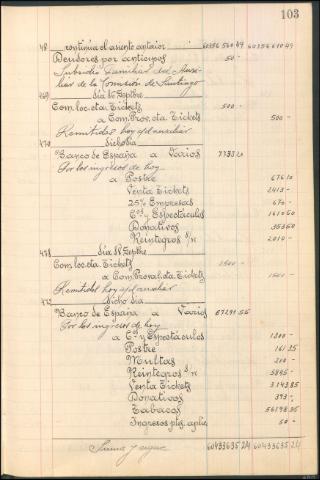 103
48 continúa el asiento anterior 60356560 49 60356610 49
Deudores por anticipos 50 -
Subsidio Familiar del Auxi-
liar de la Comisión de Santiago
469 día 16 Septbre
Com. loc. cta. Tickets 500 -
a Com. Prov. cta. Tickets 500 -
Remitidos hoy al auxiliar
470 dicho día
Banco de España a Varios
Por los ingresos de hoy
a Postre 676 10
Venta Tickets 2413 -
25% Empresas 670 -
Cos y Espectáculos 1610 50
Donativos 353 60
Reintegros s/n 2010 -
471 día 18 Septbre
Com. loc. cta. Tickets 1500 -
a Com. Proval. cta. Tickets 1500 -
Remitidos hoy al auxiliar
472 dicho día
Banco de España a Varios 67291 55
Por los ingresos de hoy
a Cos y Espectáculos 1200 -
Postre 161 25
Multas 210 -
Reintegros s/n 5895 -
Venta Tickets 3143 85
Donativos 393 -
Tabacos
Ingresos ptes. aplic. 50 -
Suma y sigue 60433635 24 60433635 24